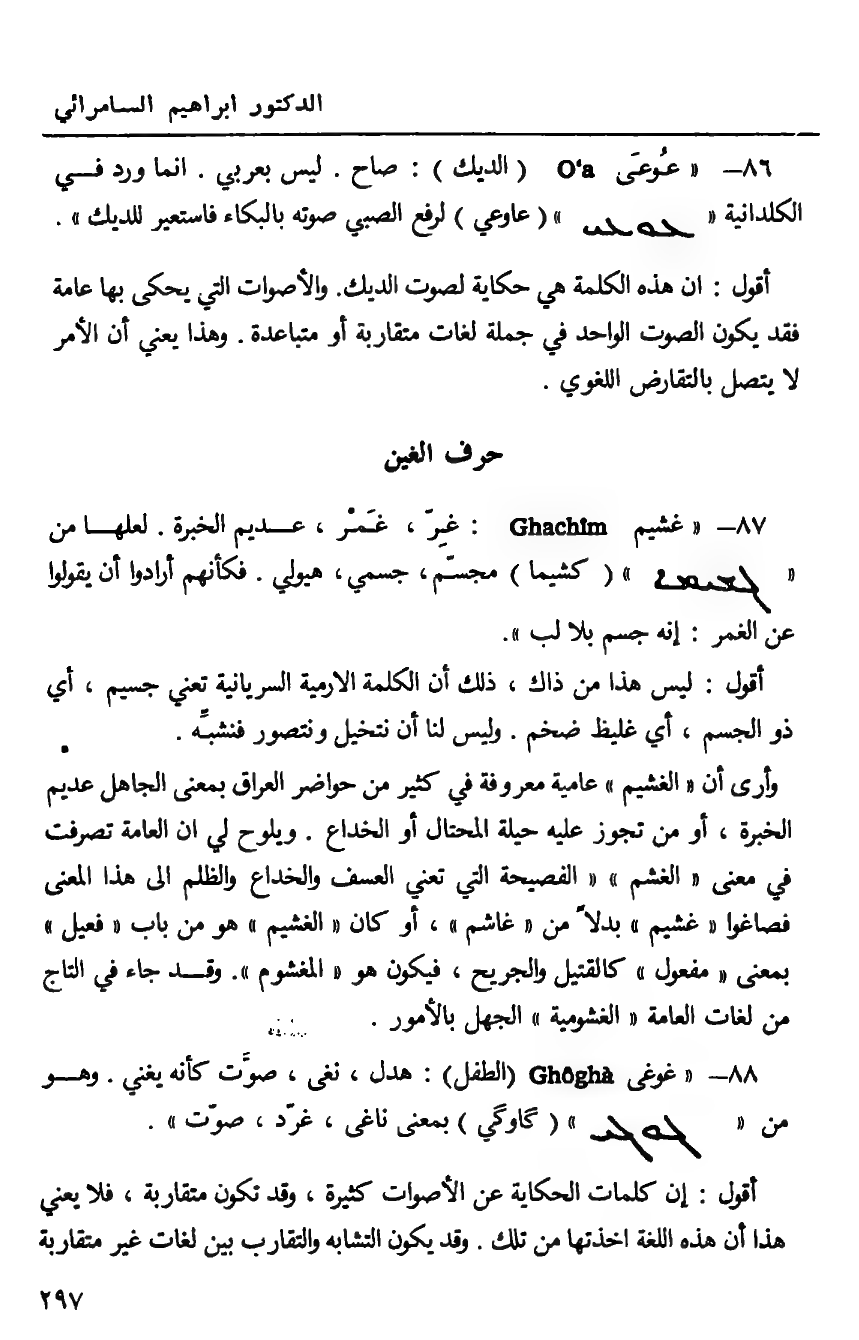 الدكتور ابراهيم السامرائي
٨٦– « عُوعَى O‘a ( الديك ) : صاح . ليس بعربي . انما ورد فـــي
الكلدانية « » ( عاوعي ) لرفع الصبي صوته بالبكاء فاستعير للديك » .
أقول : ان هذه الكلمة هي حكاية لصوت الديك. والأصوات التي يحكى بها عامة
فقد يكون الصوت الواحد في جملة لغات متقاربة أو متباعدة . وهذا يعني أن الأمر
لا يتصل بالتقارض اللغوي .
حرف الغين
٨٧– « غشيم Ghachîm : غِرّ ، غَمَـْر ، عـــديم الخبرة . لعلهـــا من
« » ( كشيما ) مجسّم، جسمي، هيولي . فكأنهم أرادوا أن يقولوا
عن الغمر : إنه جسم بلا لب ».
أقول : ليس هذا من ذاك ، ذلك أن الكلمة الارمية السريانية تعني جسيم ، أي
ذو الجسم ، أي غليظ ضخم . وليس لنا أن نتخيل ونتصور فنشبِّه .
وأرى أن « الغشيم » عامية معروفة في كثير من حواضر العراق بمعنى الجاهل عديم
الخبرة ، أو من تجوز عليه حيلة المحتال أو الخداع . ويلوح لي ان العامة تصرفت
في معنى « الغشم » « الفصيحة التي تعني العسف والخداع والظلم الى هذا المعنى
فصاغوا « غشيم » بدلاً من « غاشم » ، أو كان « الغشيم » هو من باب « فعيل »
بمعنى « مفعول » كالقتيل والجريح ، فيكون هو « المغشوم ». وقـــد جاء في التاج
من لغات العامة « الغشومية » الجهل بالأمور .
٨٨– « غوغى Ghôghà (الطفل) : هدل ، نغى ، صوَّت كأنه يغني . وهـــو
من « » ( گاوگي ) بمعنى ناغى ، غرّد ، صوّت » .
أقول : إن كلمات الحكاية عن الأصوات كثيرة ، وقد تكون متقاربة ، فلا يعني
هذا أن هذه اللغة اخذتها من تلك . وقد يكون التشابه والتقارب بين لغات غير متقاربة
٢٩٧